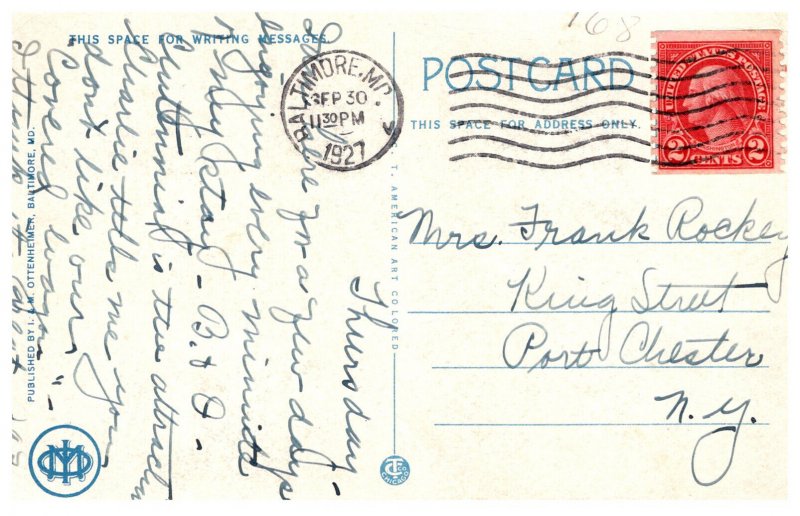 168
THIS SPACE FOR WRITING MESSAGES.
POSTCARD
THIS SPACE FOR ADDRESS ONLY.
BALTIMORE, MD.
SEP 30
11 30 PM
1927
UNITED STATES POSTAGE
WASHINGTON
2 CENTS 2
Thursday -
here for a few days
enjoying every minute
of my stay - B. & O.
Centennial is the attraction
Charlie tells me you
don't like our
"Covered Wagon" -
Mrs. Frank Rockey
King Street
Port Chester
N.Y.
PUBLISHED BY I. & M. OTTENHEIMER, BALTIMORE, MD.
C. T. AMERICAN ART COLORED
CHICAGO